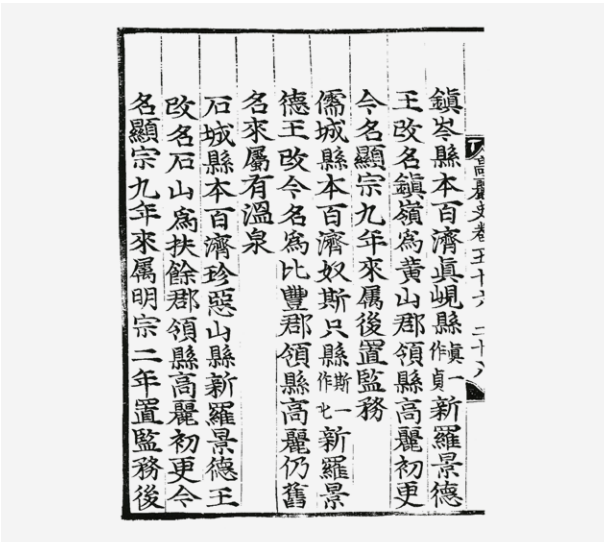 高麗史卷五十六 二十八
鎭岑縣本百濟眞峴縣眞一作貞新羅景德
王改名鎭嶺爲黃山郡領縣高麗初更
今名顯宗九年來屬後置監務
儒城縣本百濟奴斯只縣斯一作七新羅景
德王改今名爲比豐郡領縣高麗仍舊
名來屬有溫泉
石城縣本百濟珍惡山縣新羅景德王
改名石山爲扶餘郡領縣高麗初更今
名顯宗九年來屬明宗二年置監務後